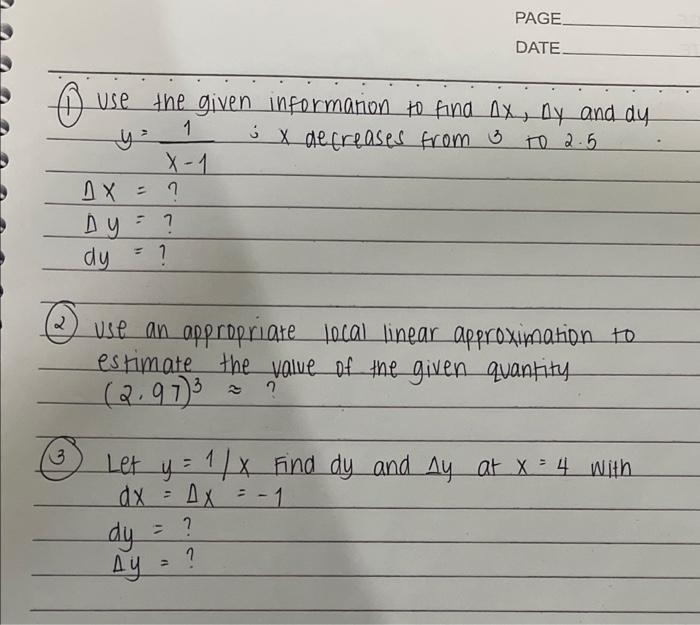 PAGE
DATE
① use the given information to find Δx, Δy and dy
y = 1 / x - 1 ; x decreases from 3 to 2.5
Δx = ?
Δy = ?
dy = ?
② use an appropriate local linear approximation to
estimate the value of the given quantity
(2.97)³ ≈ ?
③ Let y = 1/x Find dy and Δy at x = 4 with
dx = Δx = -1
dy = ?
Δy = ?